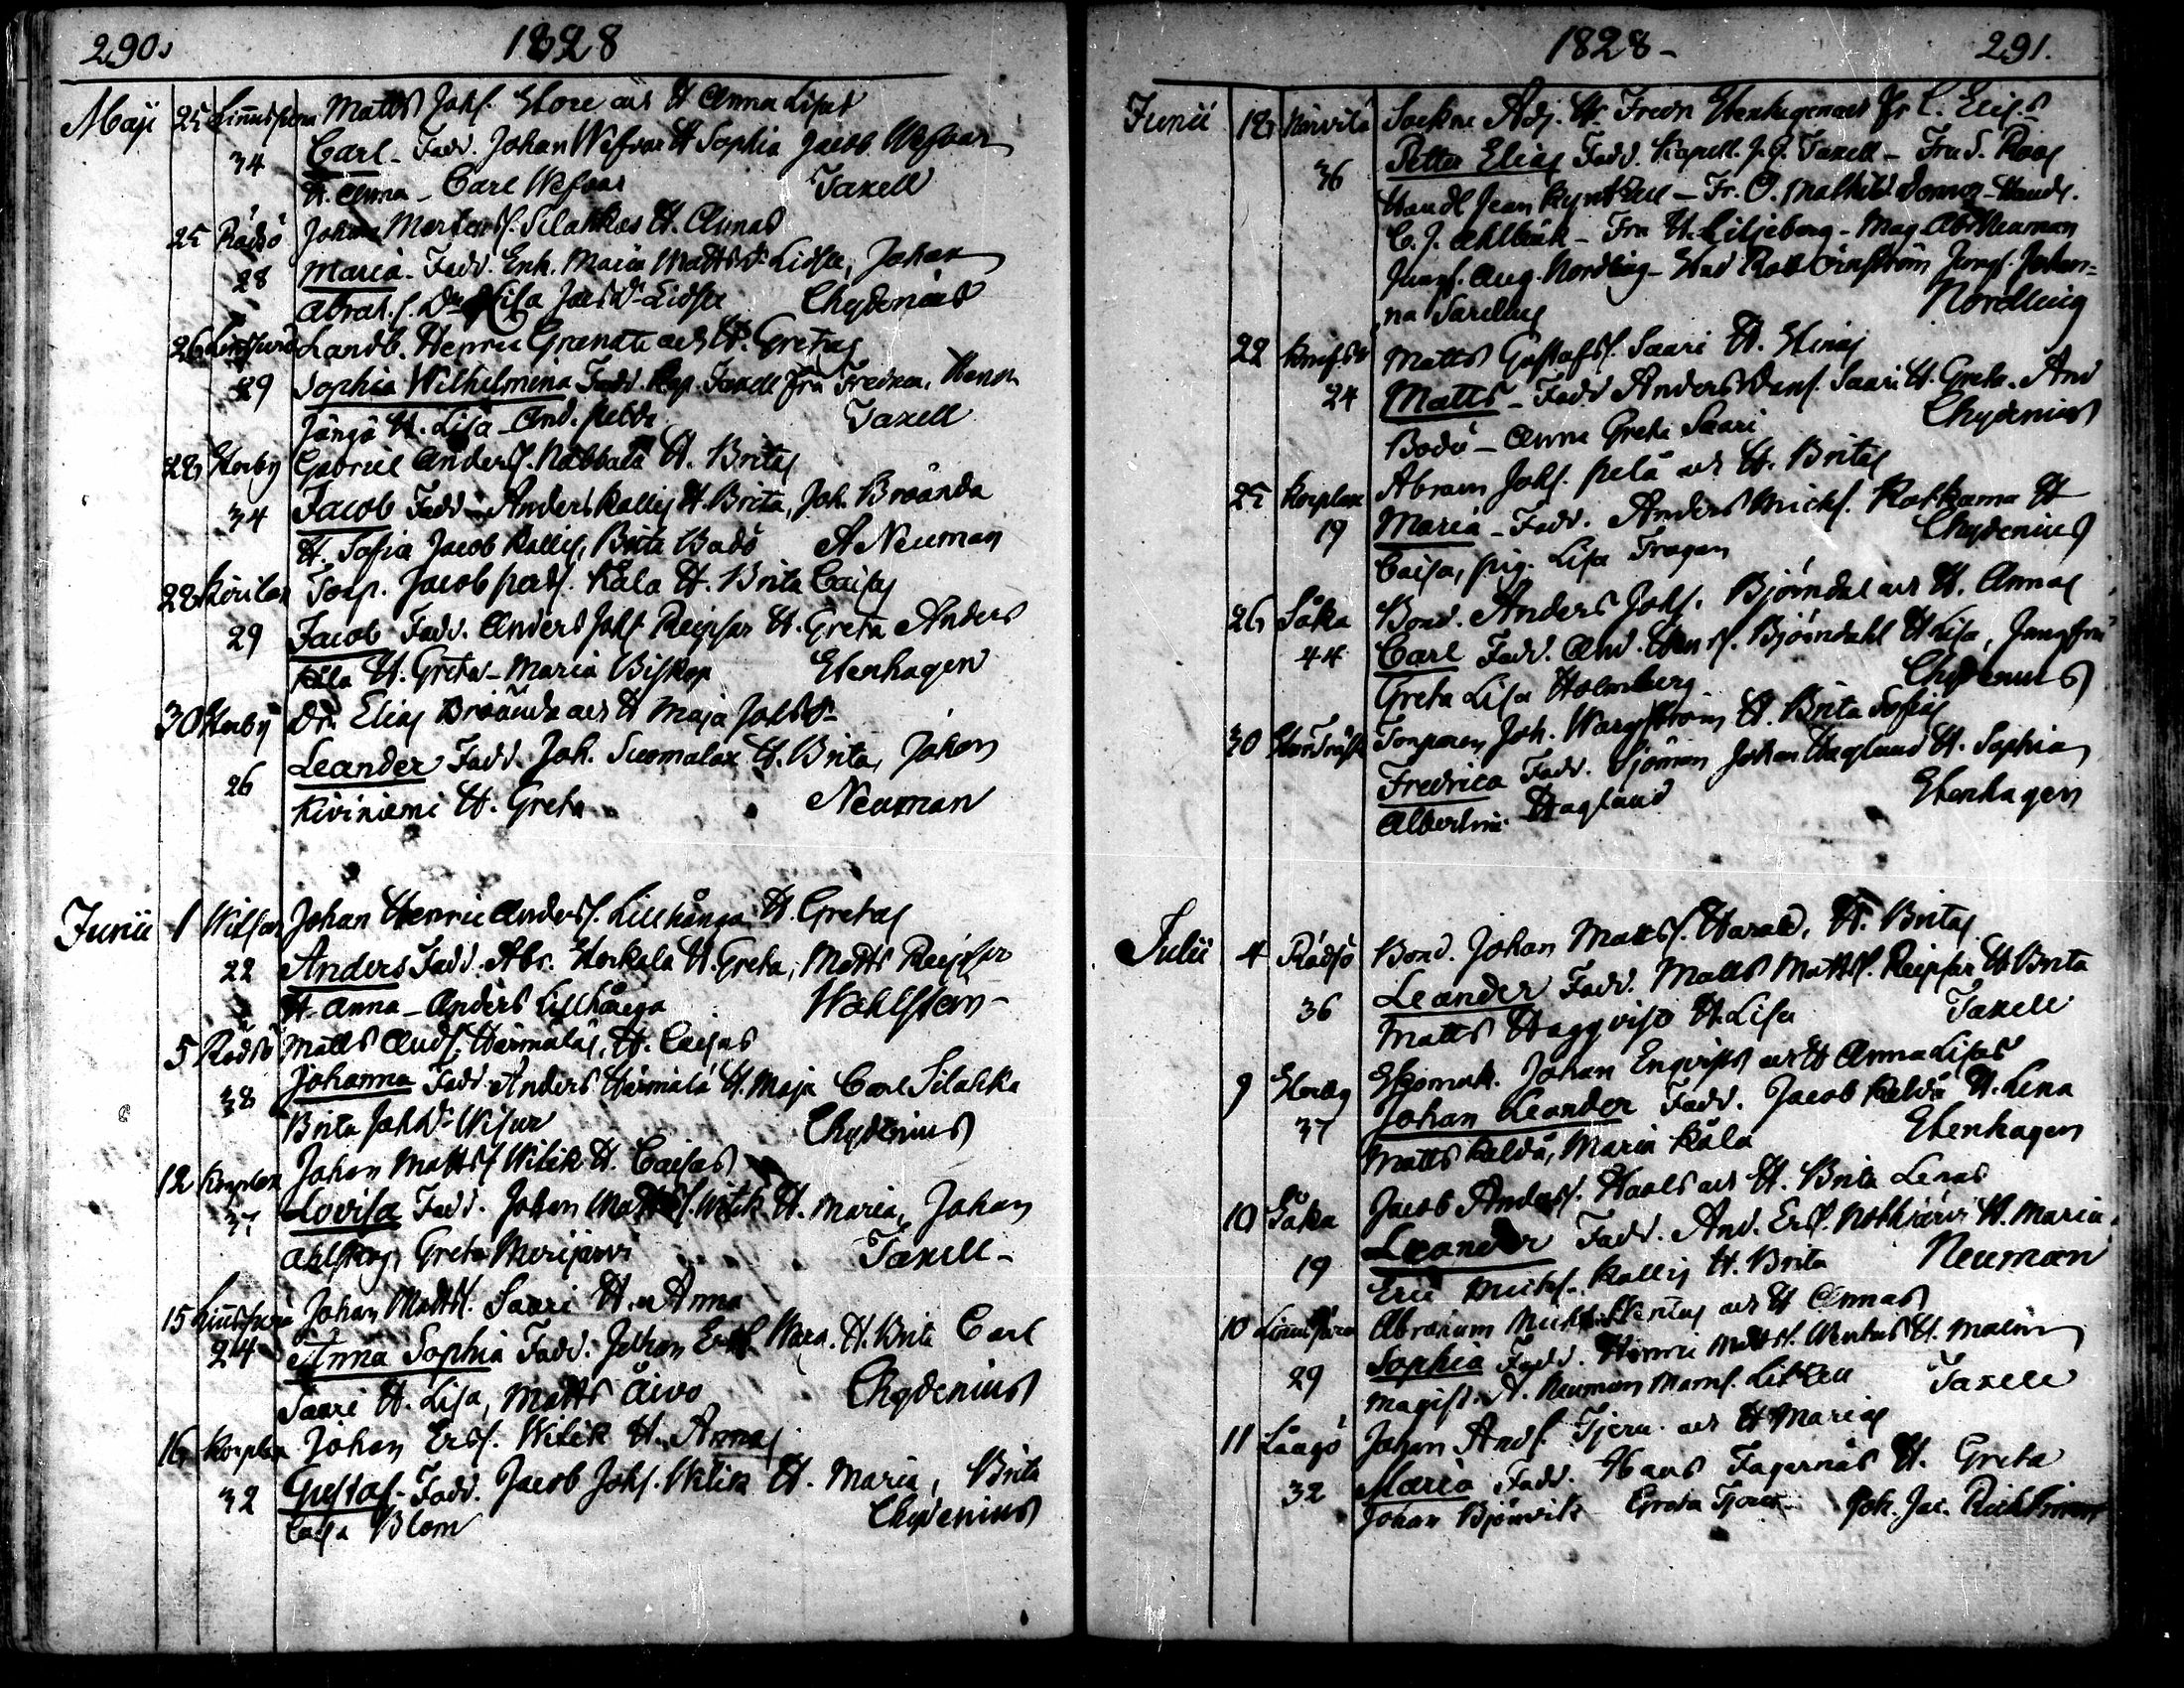 290. 1828
Maji 25 Linnusperä Matts Johs. Store och H Anna Lisas
34 Carl - Fadd. Johan Wefvar H Sophia Jacob Wefvar
H. Anna - Carl Wefvar Taxell
25 Rådsö Johan Mortenss. Silahkas H. Annas
28 Maria - Fadd. Enk. Maria Mattsdr Lidsle, Johan
Abrah.s. Lisa Lidsle Chydenius
26 Landb. Henric Granata och H. Gretas
29 Sophia Wilhelmina Fadd. Kap. Taxell Fru Fredrica, Henr
Jångå H. Lisa - And. Peldo Taxell
28 Storby Gabriel Anderss. Nabbala H. Britas
34 Jacob Fadd. Anders Kallis H. Brita, Joh. Broända
H. Sofia Jacob Kallis, Brita Bodö A Neuman
28 Kirilax Torp. Jacob Kåla H. Brita Caisas
29 Jacob Fadd. Anders Johs Reipsar H. Greta Anders
Kåla H. Greta - Maria Biskop Ebenhagen
30 Storby Dr. Elias Broända och H Maja Johsdr
26 Leander Fadd. Joh. Suomalax H. Brita, Johan
Kiviniemi H. Greta Neuman
Junii 1 Johan Henric Anderss. Lillhånga H. Gretas
22 Anders Fadd. Abr. Storkala H. Greta, Matts Reipsar
H. Anna - Anders Lillhånga Wahlstein -
5 Rådsö Matts Ands. Härmäläs, H. Caisas
38 Johanna Fadd. Anders Härmälä H. Maja Carl Silahka
Brita Johsdr Chydenius
12 Korplax Johan Mattss Witik H. Caisas
37 Lovisa Fadd. Johan Mattss. Witik H. Maria, Johan
Ahlskog, Greta Merijärvi Taxell -
15 Linnusperä Johan Mattss. Saari H. Anna
24 Anna Sophia Fadd. Johan Erss. Wara. H. Brita Carl
Saari H. Lisa, Matts Äivo Chydenius
16 Korplax Johan Erss. Witik H. Annas
32 Gustaf - Fadd. Jacob Johs. Witik H. Maria, Brita
Caisa Blom Chydenius
1828 - 291.
Junii 18 Kirvilä Sockne Adj. Hr Fredr Ebenhagen och Fr C. Elis.
36 Petter Elias Fadd. Kapell. J. G. Taxell - Fru S. Roos
Handl Jean Kyntzell - Fr. O. Mathild Donner - Handl.
C. J. Ahlbäck - Fru H. Liljeborg - Mag Abr Neuman
Jungf. Aug. Nordling - Stud Rob Örnström Jungf. Johan=
na Sarelius Nordling
22 Matts Gustafs. Saari H. Stinas
24 Matts - Fadd Anders Saari H. Greta. And
Bodö - Anna Greta Saari Chydenius
25 Korplax Abram Johs. Pelå och H. Britas
19 Maria - Fadd. Anders Michs. Kotkama H
Caisa, Pig. Lisa Fragan Chydenius
26 Såka Bond. Anders Johs. Björndal och H. Annas
44 Carl Fadd. And. Björndahl H Lisa, Jungfru
Greta Lisa Holmberg Chydenius
30 Storträsk Torparen Joh. Wargström H. Brita Sofias
Fredrica Fadd. Sjöman Johan Haglund H. Sophia
Albertina Haglund Ebenhagen
Julii 4 Rådsö Bond. Johan Mattss. Harald, H. Britas
36 Leander Fadd. Matts Mattss. Reipsar H Brita
Matts Haggqvist H. Lisa Taxell
9 Skomak. Johan Enqvists och H Anna Lisas
37 Johan Leander Fadd. Jacob Keldå H. Lena
Matts Keldå, Maria Kåla Ebenhagen
10 Såka Jacob Anderss. Haals och H. Brita Lenas
19 Leander Fadd. And. Erss. Nokkiärvi H. Maria.
Eric Michs. Kallis H. Brita Neuman
10 Linnusperä Abraham Michss. Wentus och H Annas
29 Sophia Fadd. Henric Mattss. Wentus H. Malin
Magist. A. Neuman Mams. Litzen Taxell
11 Långö Johan Ands. Tjeru och H Marias
32 Maria Fadd. Hans Fagernäs H. Greta
Johan Björnvik Greta Tjeru Joh. Jac.